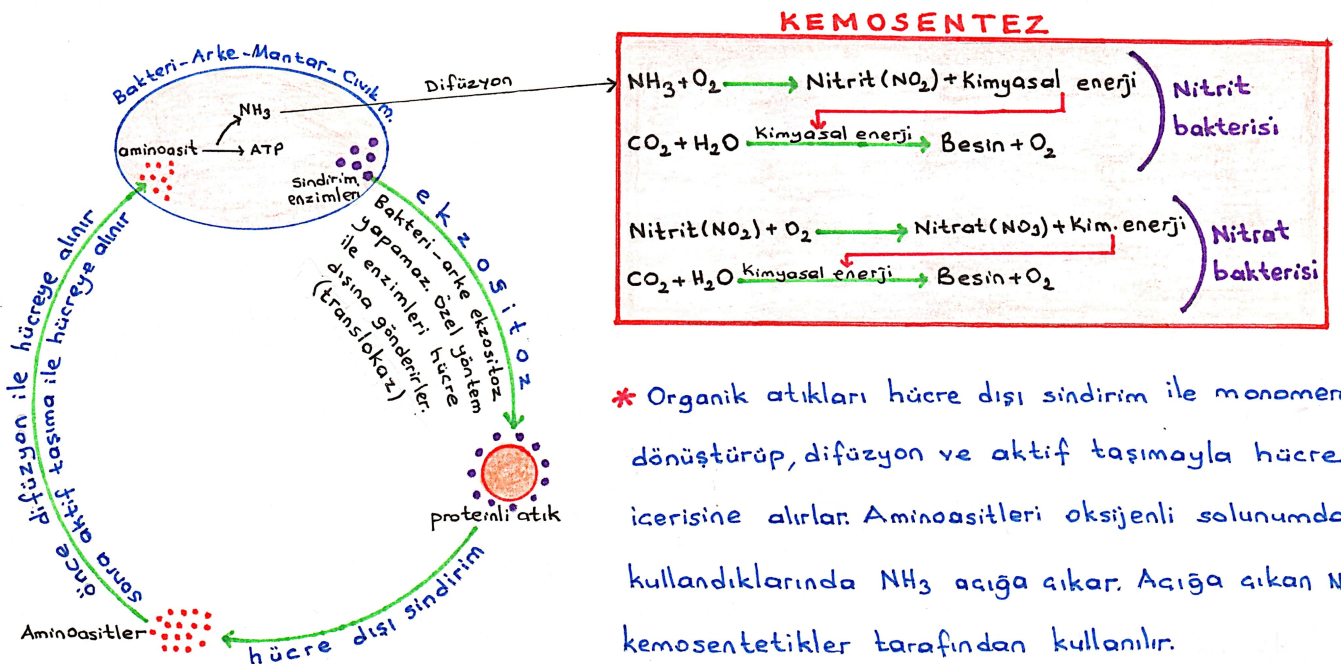 Bakteri-Arke-Mantar-Cıvık m.
NH₃
aminoasit → ATP
sindirim
enzimleri
Difüzyon
ekzositoz
Bakteri-arke ekzositoz
yapamaz. Özel yöntem
ile enzimleri hücre
dışına gönderirler.
(translokaz)
proteinli atık
hücre dışı sindirim
Aminoasitler
önce difüzyon ile hücreye alınır
sonra aktif taşıma ile hücreye alınır
KEMOSENTEZ
NH₃+O₂ → Nitrit(NO₂)+Kimyasal enerji
Kimyasal enerji
CO₂+H₂O → Besin+O₂
Nitrit
bakterisi
Nitrit(NO₂)+O₂ → Nitrat(NO₃)+Kim. enerji
Kimyasal enerji
CO₂+H₂O → Besin+O₂
Nitrat
bakterisi
* Organik atıkları hücre dışı sindirim ile monomer
dönüştürüp, difüzyon ve aktif taşımayla hücre
icerisine alırlar. Aminoasitleri oksijenli solunumda
kullandıklarında NH₃ açığa çıkar. Açığa çıkan N
kemosentetikler tarafından kullanılır.